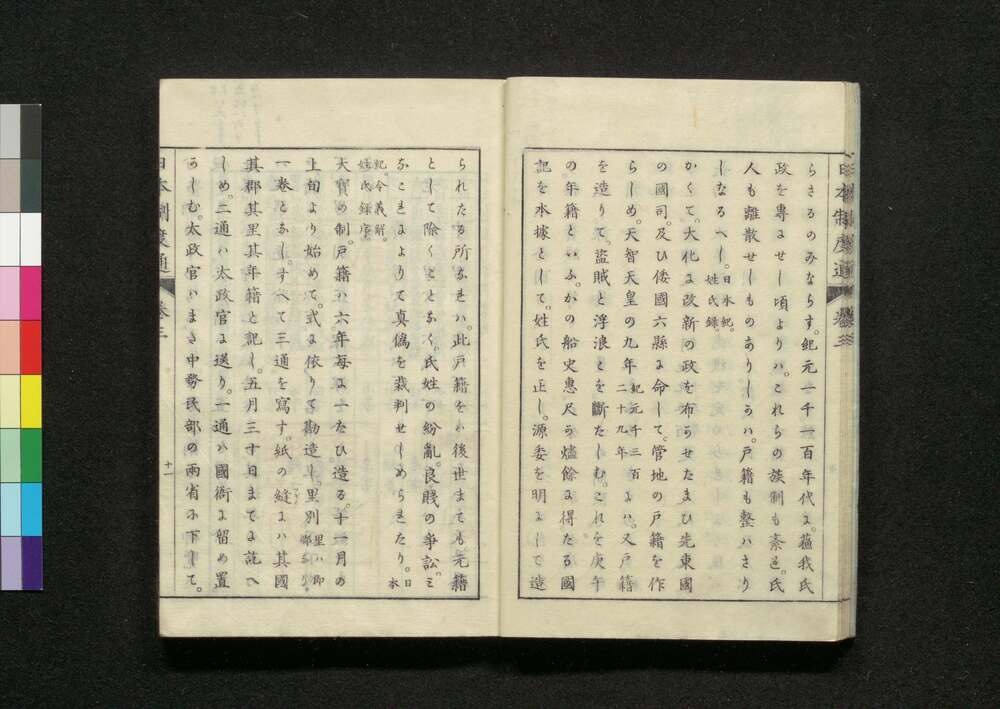 らさるのみならす。紀元一千一百年代に。蘇我氏
政を專にせし頃よりハ。これらの族制も紊亂。氏
人も離散せしものありしうハ。戸籍も整ハさり
しなるへし。日本紀。姓氏録。
かくて。大化に改新の政を布らせたまひ先東國
の國司。及ひ倭國六縣に命して。管地の戸籍を作
らしめ。天智天皇の九年紀元千三百二十九年にハ。又戸籍
を造りて。盗賊と浮浪とを斷たしむ。これを庚午
の年籍といふ。かの船史惠尺う燼餘に得たる國
記を本據として。姓氏を正し。源委を明にして造
られたる所なれハ。此戸籍をハ後世まても元籍
として除くことなく。氏姓の紛亂。良賤の爭訟。ミ
なこれによりて真僞を裁判せしめられたり。日本
紀。令義解。姓氏録序。
大寶の制。戸籍ハ六年毎に一たひ造る。十一月の
上旬より始めて。式に依りて勘造し。里別里ハ即郷なり。に
一巻となし。すへて三通を寫す。紙の縫にハ其國
其郡其里其年籍と記し。五月三十日まてに訖へ
しめ。二通ハ太政官に送り。一通ハ國衙に留め置
うしむ。太政官ハまさ中務民部の兩省に下して。
日本制度通 卷三
日本制度通 卷三
十一